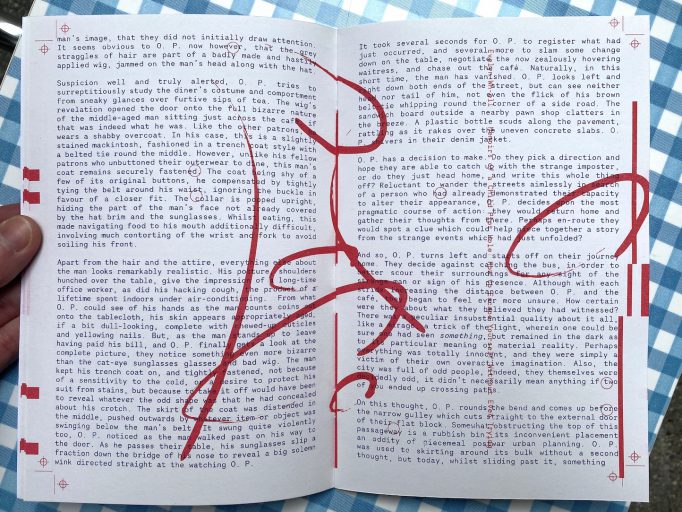 man's image, that they did not initially draw attention.
It seems obvious to O. P. now however, that the grey
straggles of hair are part of a badly made and hastily
applied wig, jammed on the man's head along with the hat.
Suspicion well and truly alerted, O. P. tries to
surreptitiously study the diner's costume and comportment
from sneaky glances over furtive sips of tea. The wig's
revelation opened the door onto the full bizarre nature
of the middle-aged man sitting just across the café, if
that was indeed what he was. Like the other patrons, he
wears a shabby overcoat. In his case, this is a slightly
stained mackintosh, fashioned in a trench coat style with
a belted tie round the middle. However, unlike his fellow
patrons who unbuttoned their outerwear to dine, this man's
coat remains securely fastened. The coat being shy of a
few of its original buttons, he compensated by tightly
tying the belt around his waist, ignoring the buckle in
favour of a closer fit. The collar is popped upright,
hiding the part of the man's face not already covered
by the hat brim and the sunglasses. Whilst eating, this
made navigating food to his mouth additionally difficult,
involving much contorting of the wrist and fork to avoid
soiling his front.
Apart from the hair and the attire, everything else about
the man looks remarkably realistic. His posture, shoulders
hunched over the table, give the impression of a long-time
office worker, as did his hacking cough, the product of a
lifetime spent indoors under air-conditioning. From what
O. P. could see of his hands as the man counts coins out
onto the tablecloth, his skin appears appropriately aged,
if a bit dull-looking, complete with chewed cuticles
and yellowing nails. But, as the man stands up to leave
having paid his bill, and O. P. finally gets a look at the
complete picture, they notice something even more bizarre
than the cat-eye sunglasses glasses and bad wig. The man
kept his trench coat on, and tightly fastened, not because
of a sensitivity to the cold, or a desire to protect his
suit from stains, but because to take it off would have been
to reveal whatever the odd shape is that he had concealed
about his crotch. The skirt of the coat was distended in
the middle, pushed outwards by whatever item or object was
swinging below the man's belt. It swung quite violently
too, O. P. noticed as the man walked past on his way to
the door. As he passes their table, his sunglasses slip a
fraction down the bridge of his nose to reveal a big solemn
wink directed straight at the watching O. P.
It took several seconds for O. P. to register what had
just occurred, and several more to slam some change
down on the table, negotiate the now zealously hovering
waitress, and chase out the café. Naturally, in this
short time, the man has vanished. O. P. looks left and
right down both ends of the street, but can see neither
head nor tail of him, not even the flick of his brown
belt tie whipping round the corner of a side road. The
sandwich board outside a nearby pawn shop clatters in
the breeze. A plastic bottle scuds along the pavement,
rattling as it rakes over the uneven concrete slabs. O.
P. shivers in their denim jacket.
O. P. has a decision to make. Do they pick a direction and
hope they are able to catch up with the strange imposter,
or do they just head home, and write this whole thing
off? Reluctant to wander the streets aimlessly in search
of a person who had already demonstrated their capacity
to alter their appearance, O. P. decides on the most
pragmatic course of action: they would return home and
gather their thoughts from there. Perhaps en-route they
would spot a clue which could help piece together a story
from the strange events which had just unfolded?
And so, O. P. turns left and starts off on their journey
home. They decide against catching the bus, in order to
better scour their surroundings for sight of the
man or sign of his presence. Although with each
stride increasing the distance between O. P. and the
café, they began to feel ever more unsure. How certain
were they about what they believed they had witnessed?
There was a peculiar insubstantial quality about it all,
like a trick of the light, wherein one could be
sure one had seen something, but remained in the dark as
to the particular meaning or material reality. Perhaps
everything was totally innocent, and they were simply a
victim of their own overactive imagination. Also, the
city was full of odd people, indeed, they themselves were
decidedly odd, it didn't necessarily mean anything if
you ended up crossing paths.
On this thought, O. P. rounds the bend and comes up before
the narrow gulley which cuts straight to the external door
of their flat block. Somewhat obstructing the top of this
passageway is a rubbish bin, its inconvenient placement
an oddity of piecemeal postwar urban planning. O. P.
was used to skirting around its bulk without a second
thought, but today, whilst sliding past it, something